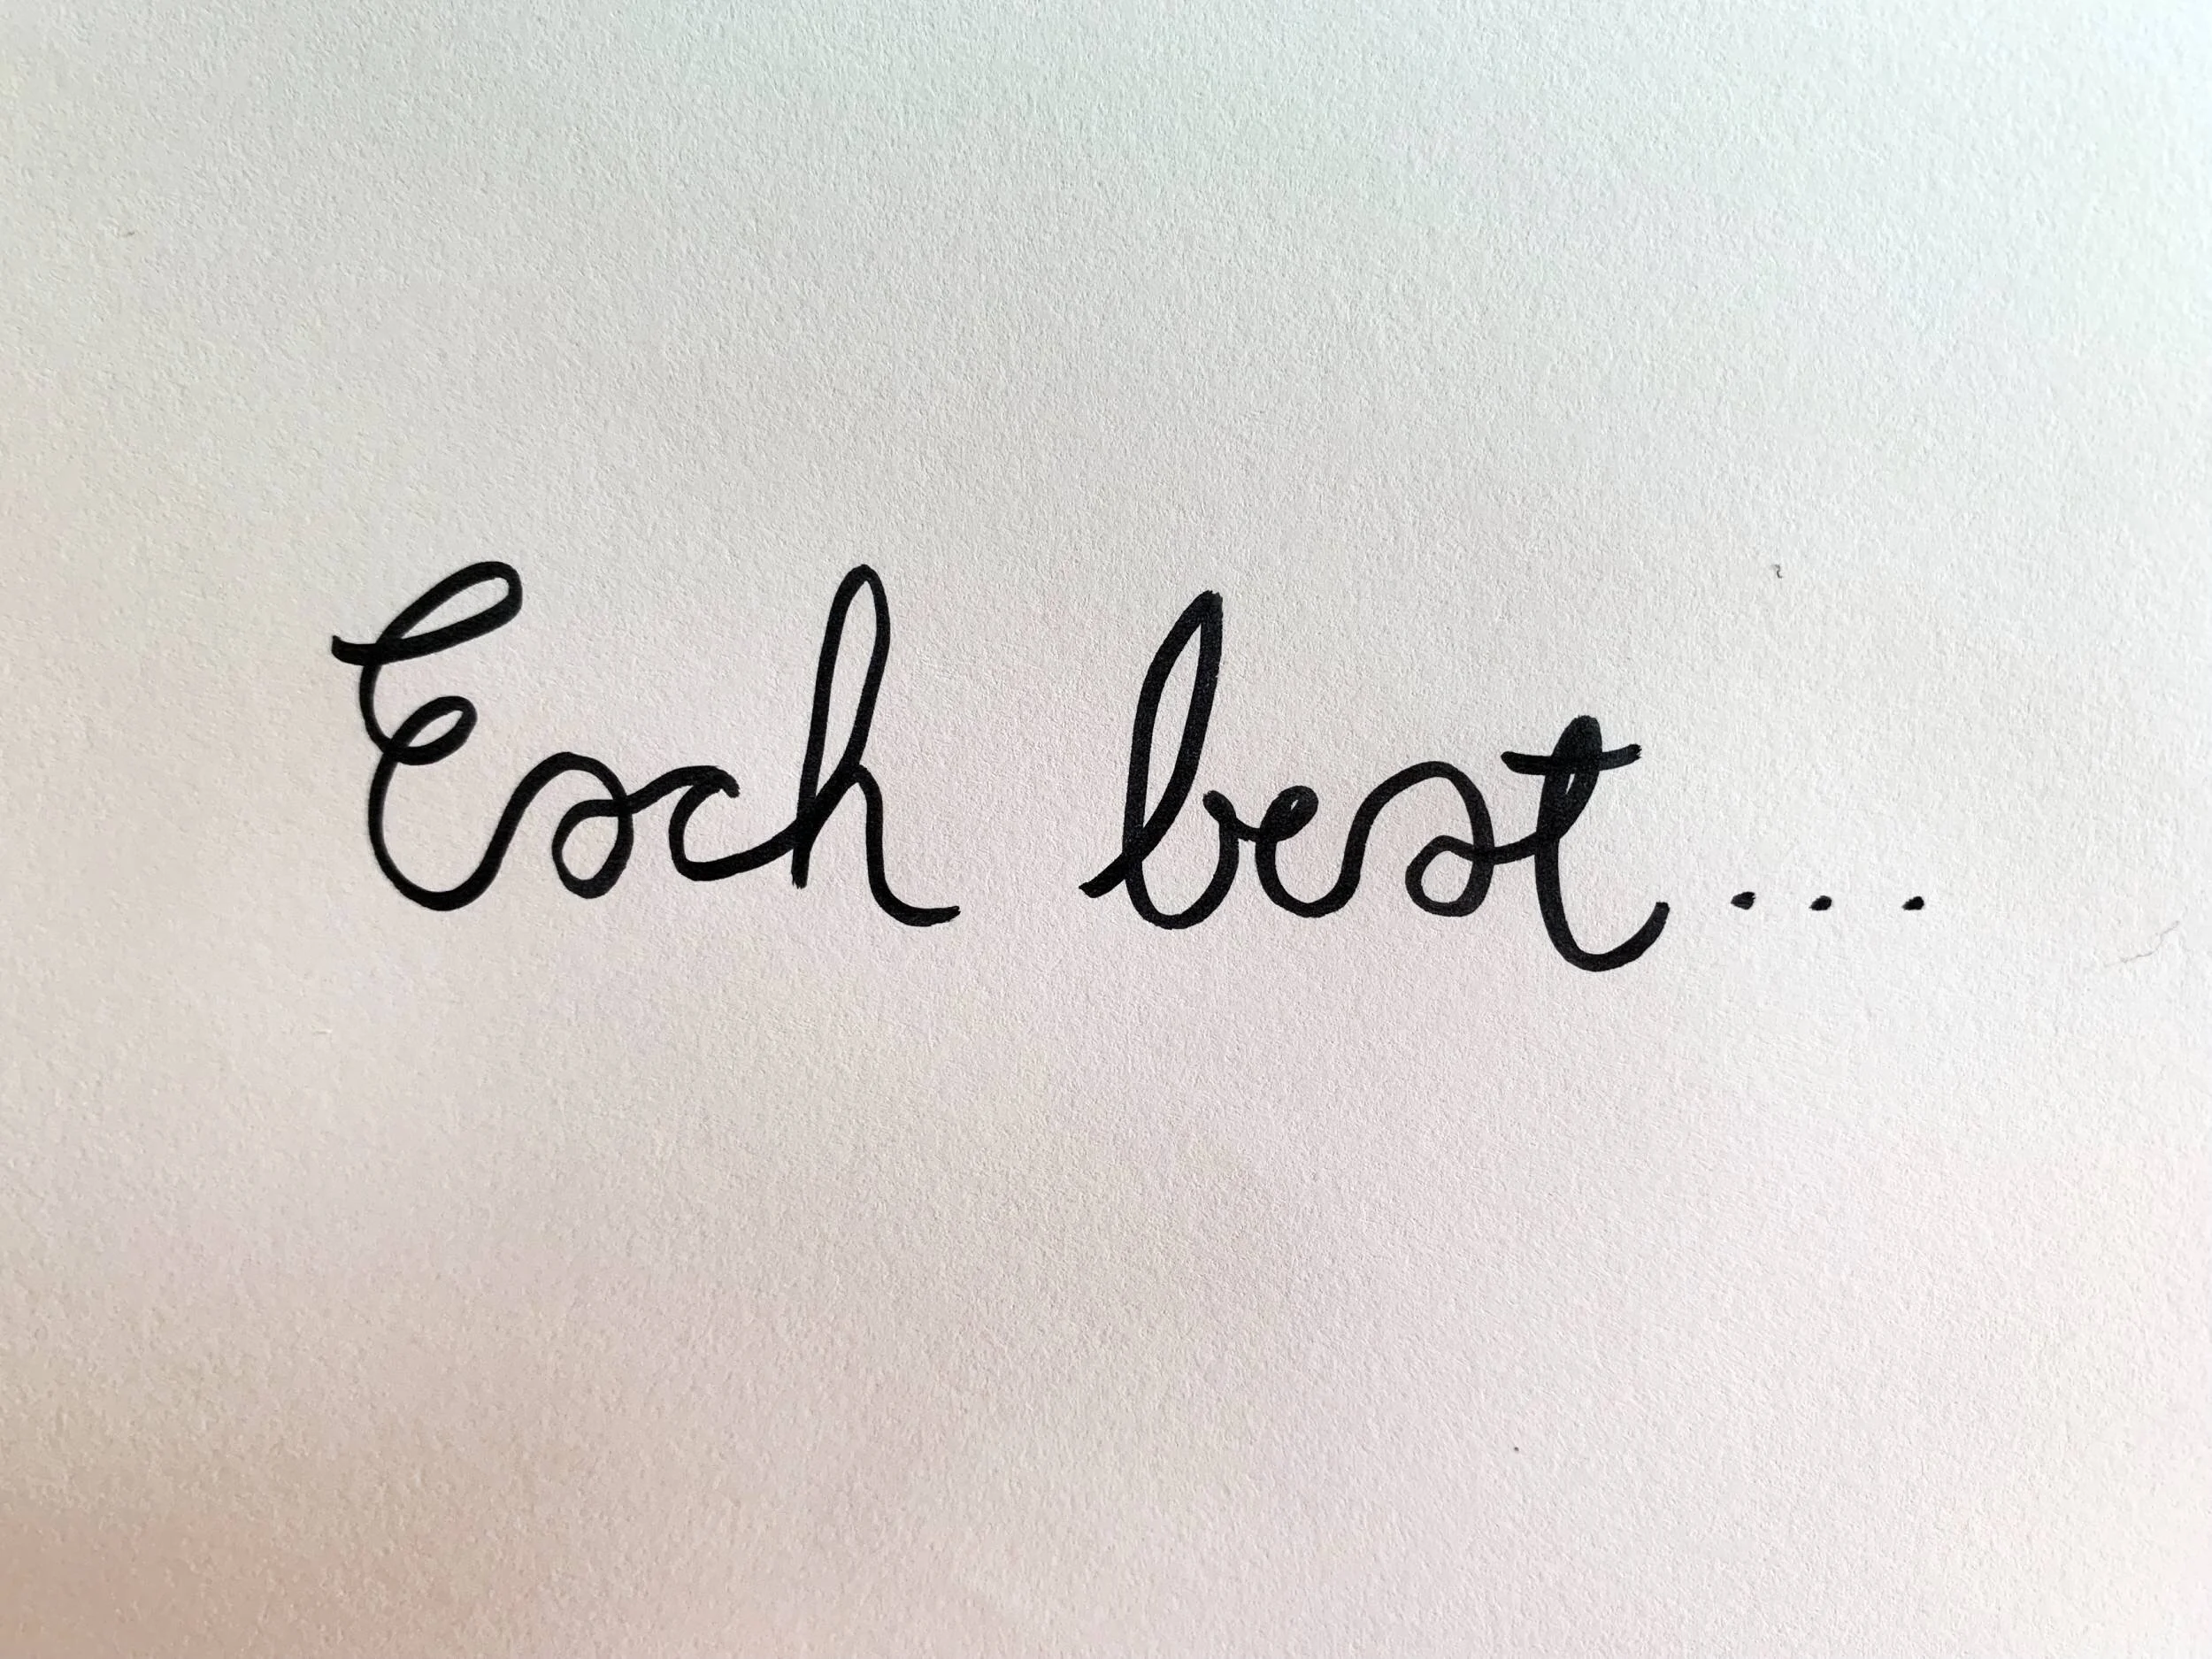 Each beat...